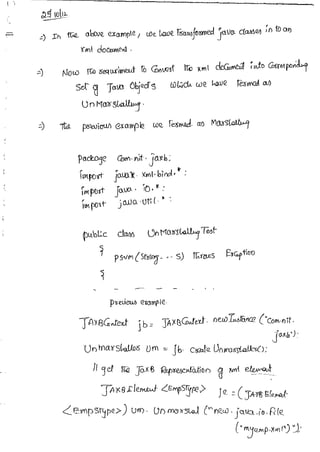 25/10/12
=) In the above example, we have Transformed java classes in to an
xml document.
=) Now the requirment to Convert the xml document into Corresponding
Set of Java Objects which we have Termed as
UnMarshalling.
=) The previous example we Termed as Marshalling
package Com.nit.jaxb;
import javax.xml.bind.*;
import java.io.*;
import java.util.*;
public class UnMarshallingTest
{
psvm(String...s) throws Exception
{
- - - - - - - -
previous example
JAXBContext jb= JAXBContext.newInstance("Com.nit.
jaxb");
Unmarshaller um = jb.createUnmarshaller();
// get the JaxB Representation of xml element
JAXBElement <EmpsType> je = (JAXBElement
<empsType>) um.Unmarshal("new.java.io.File
("myemp.xml"));